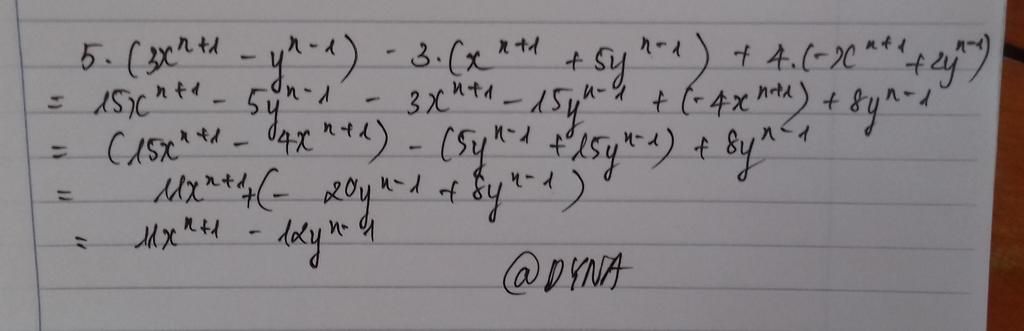 5.(3xⁿ⁺¹ - yⁿ⁻¹) - 3.(xⁿ⁺¹ + 5yⁿ⁻¹) + 4.(-xⁿ⁺¹ + 2yⁿ⁻¹)
= 15xⁿ⁺¹ - 5yⁿ⁻¹ - 3xⁿ⁺¹ - 15yⁿ⁻¹ + (-4xⁿ⁺¹) + 8yⁿ⁻¹
= (15xⁿ⁺¹ - 4xⁿ⁺¹) - (5yⁿ⁻¹ + 15yⁿ⁻¹) + 8yⁿ⁻¹
= 11xⁿ⁺¹ + (- 20yⁿ⁻¹ + 8yⁿ⁻¹)
= 11xⁿ⁺¹ - 12yⁿ⁻¹
@DYNA